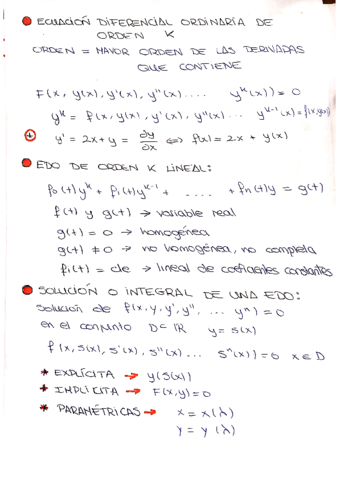 ECUACIÓN DIFERENCIAL ORDINARIA DE
ORDEN K
ORDEN = MAYOR ORDEN DE LAS DERIVADAS
QUE CONTIENE
F(x, y(x), y'(x), y''(x) .... yᵏ(x)) = 0
yᵏ = f(x, y(x), y'(x), y''(x) ... yᵏ⁻¹(x) = f(x,y(x))
y' = 2x + y = ∂y/∂x ⇔ f(x) = 2x + y(x)
EDO DE ORDEN K LINEAL:
f₀(t)yᵏ + f₁(t)yᵏ⁻¹ + ..... + fₙ(t)y = g(t)
f(t) y g(t) → variable real
g(t) = 0 → homogénea
g(t) ≠ 0 → no homogénea, no completa
fᵢ(t) = cte → lineal de coeficientes constantes
SOLUCIÓN O INTEGRAL DE UNA EDO:
Solución de f(x, y, y', y'', ... yⁿ) = 0
en el conjunto D ⊂ ℝ y = s(x)
f(x, s(x), s'(x), s''(x) ... sⁿ(x)) = 0 x ∈ D
* EXPLÍCITA → y(s(x))
* IMPLÍCITA → F(x,y) = 0
* PARAMÉTRICAS → x = x(λ)
y = y(λ)